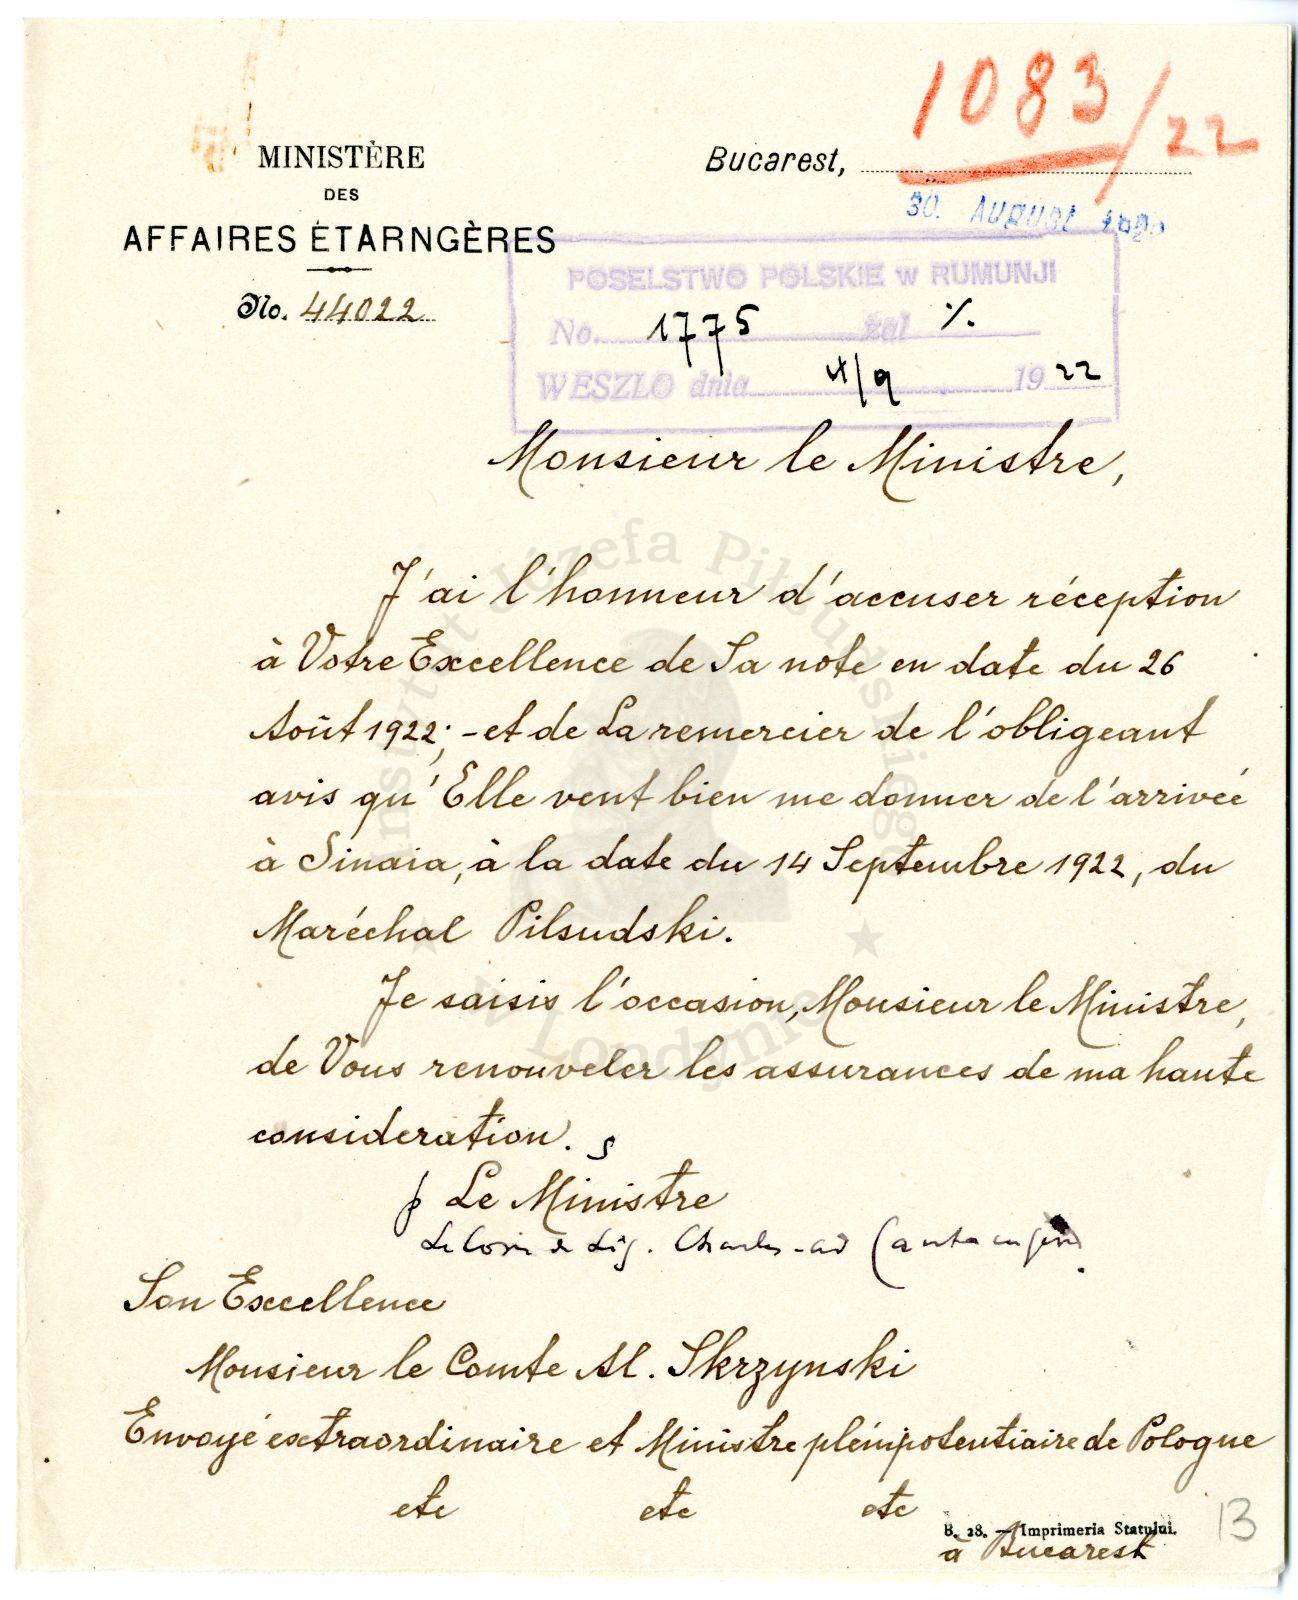 1083/22
MINISTÈRE
DES
AFFAIRES ÉTARNGÈRES
No. 44022
Bucarest,
30. August
POSELSTWO POLSKIE w RUMUNJI
No. 1775 zał %
WESZŁO dnia 4/9 1922
Monsieur le Ministre,
J'ai l'honneur d'accuser réception
à Votre Excellence de Sa note en date du 26
Août 1922; - et de La remercier de l'obligeant
avis qu'Elle veut bien me donner de l'arrivée
à Sinaia, à la date du 14 Septembre 1922, du
Maréchal Pilsudski.
Je saisis l'occasion, Monsieur le Ministre,
de Vous renouveler les assurances de ma haute
consideration.
p Le Ministre
Son Excellence
Monsieur le Comte Al. Skrzynski
Envoyé extraordinaire et Ministre plénipotentiaire de Pologne
etc etc etc
B. 28. — Imprimeria Statului.
à Bucarest
13
Instytut Józefa Piłsudskiego
w Londynie